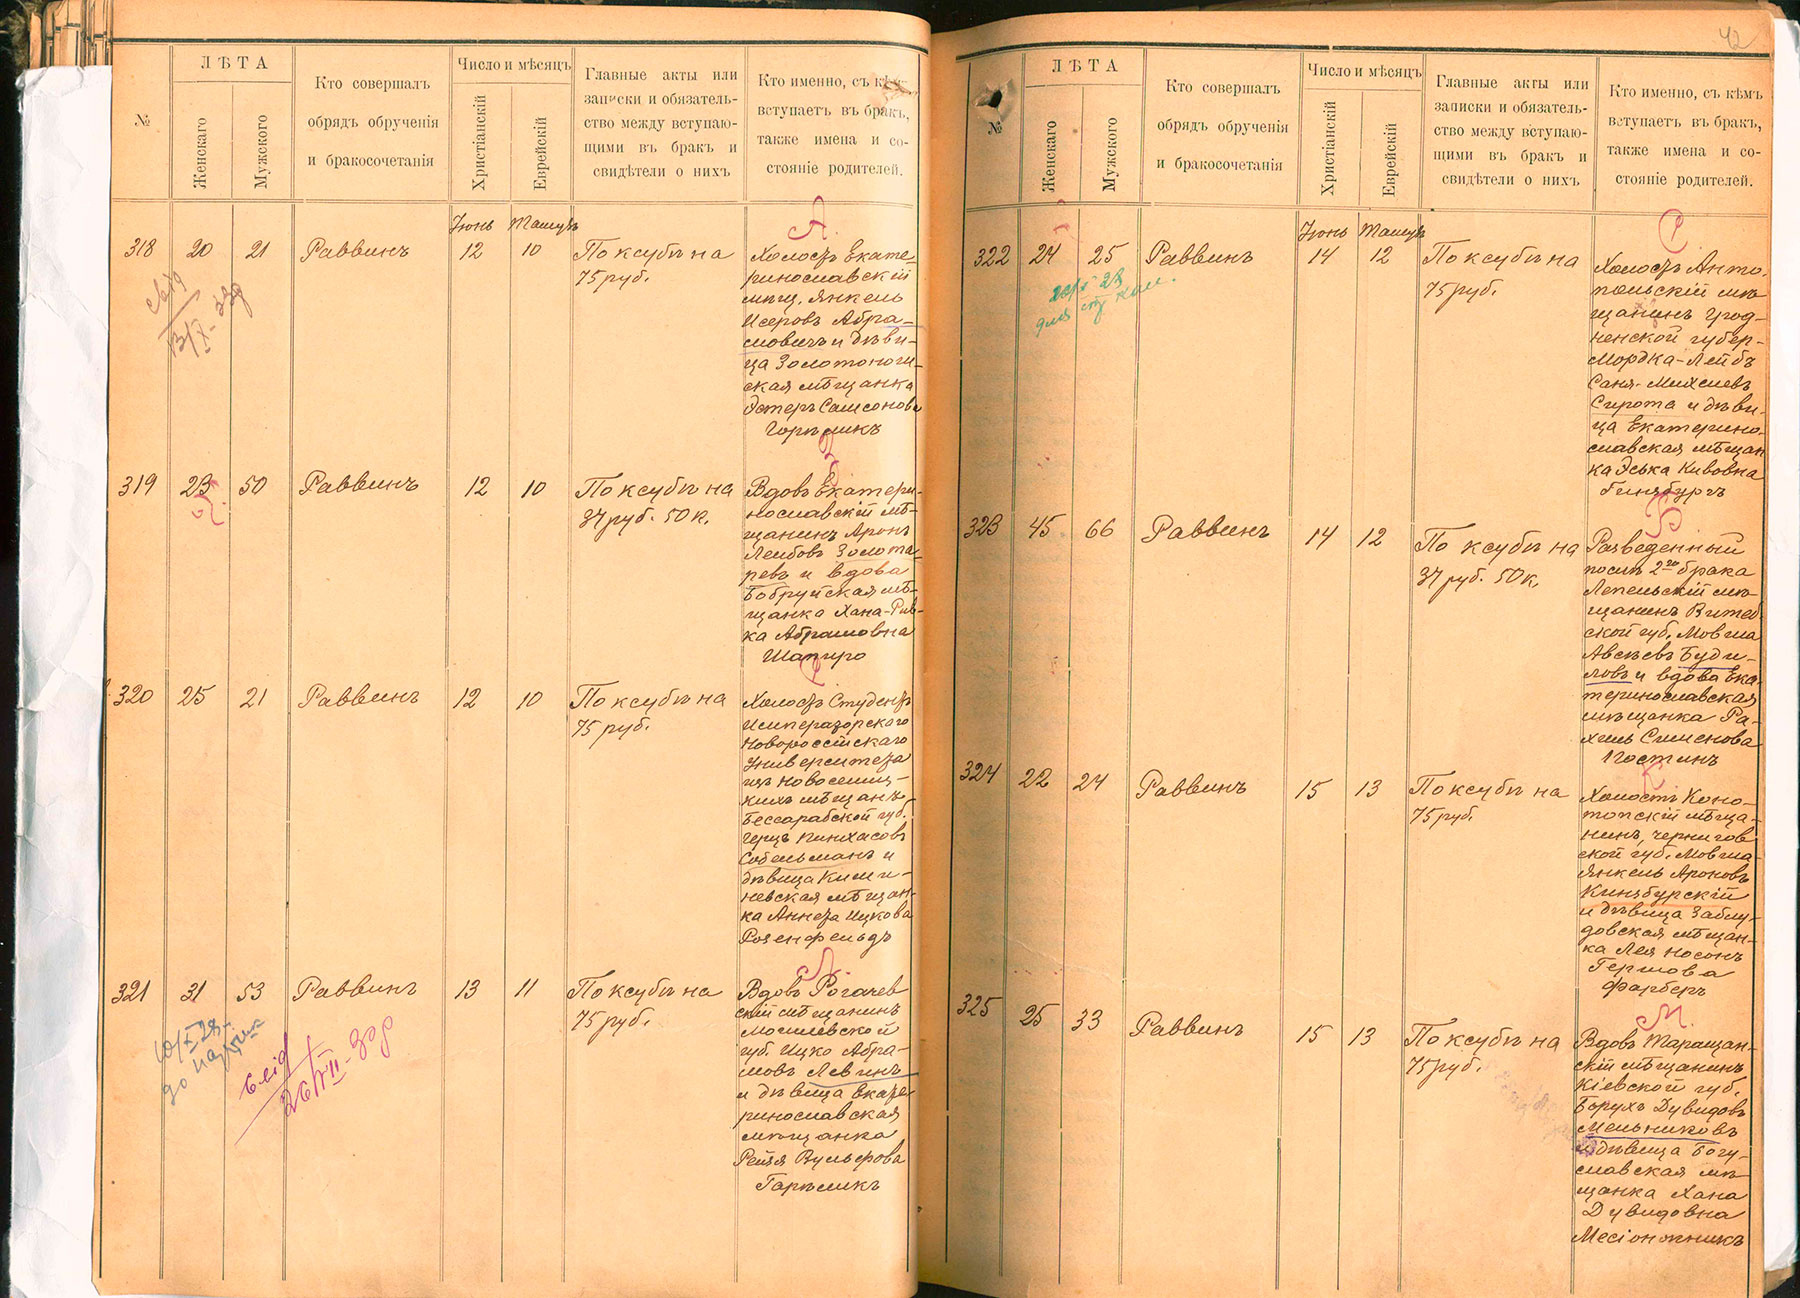 №
ЛѢТА
Женскаго
Мужского
Кто совершалъ
обрядъ обрученія
и бракосочетанія
Число и мѣсяцъ
Христіанскій
Еврейскій
Главные акты или
записки и обязатель-
ство между вступаю-
щими въ бракъ и
свидѣтели о нихъ
Кто именно, съ кѣмъ
вступаетъ въ бракъ,
также имена и со-
стояніе родителей.
Іюнь Тамузъ
318 20 21 Раввинъ 12 10 По ксубѣ на
75 руб.
А.
Холостъ Екате-
ринославскій
мѣщ. Янкель
Исеровъ Абра-
мовичъ и дѣви-
ца Золотоно
ская мѣщанка
Эстеръ Самсонова
Горѣликъ
319 23 50 Раввинъ 12 10 По ксубѣ на
37 руб. 50 к.
Вдовъ Екатери-
нославскій мѣ-
щанинъ Аронъ
Лейбовъ Золота-
ревъ и вдова
Бобруйская мѣ-
щанка Хана-Рив-
ка Абрамовна
Шапиро
320 25 21 Раввинъ 12 10 По ксубѣ на
75 руб.
Холостъ Студентъ
Императорского
Новороссійскаго
Университета
изъ Новоселиц-
кихъ мѣщанъ
Бессарабской губ.
Герцъ Пинхасовъ
Собельманъ и
дѣвица Киши-
невская мѣщан-
ка Аннета Ицкова
Розенфельдъ
321 31 53 Раввинъ 13 11 По ксубѣ на
75 руб.
Л.
Вдовъ Рогачев
скій мѣщанинъ
Могилевской
губ. Ицко Абра-
мовъ Левинъ
и дѣвица Екате-
ринославская
мѣщанка
Рейзя Вульфова
Гарѣликъ
42
№
ЛѢТА
Женскаго
Мужского
Кто совершалъ
обрядъ обрученія
и бракосочетанія
Число и мѣсяцъ
Христіанскій
Еврейскій
Главные акты или
записки и обязатель-
ство между вступаю-
щими въ бракъ и
свидѣтели о нихъ
Кто именно, съ кѣмъ
вступаетъ въ бракъ,
также имена и со-
стояніе родителей.
Іюнь Тамузъ
322 24 25 Раввинъ 14 12 По ксубѣ на
75 руб.
С
Холостъ Анто-
польскій мѣ
щанинъ Грод-
ненской губер-
Мордка-Лейбъ
Саня-Михелевъ
Сирота и дѣви-
ца Екатерино-
славская мѣщан
ка Эська Кивовна
Гинзбургъ
323 45 66 Раввинъ 14 12 По ксубѣ на
37 руб. 50 к.
Б
Разведенный
послѣ 2го брака
Лепельскій мѣ-
щанинъ Витеб
ской губ. Мовша
Авсѣевъ Буди-
ловъ и вдова Ека-
теринославская
мѣщанка Ра-
хиль Сименова
Гостинъ
324 22 24 Раввинъ 15 13 По ксубѣ на
75 руб.
К
Холостъ Коно-
топскій мѣща-
нинъ, Чернигов
ской губ. Мовша-
Янкель Ароновъ
Кинзбурскій
и дѣвица Заблу-
довская мѣщан-
ка Лея Носонъ
Гершова
Фарберъ
325 25 33 Раввинъ 15 13 По ксубѣ на
75 руб.
М.
Вдовъ Таращан-
скій мѣщанинъ
Кіевской губ.
Борухъ Дувидовъ
Мельниковъ
и дѣвица Богу-
славская мѣ-
щанка Хана
Дувидовна
Месіонжникъ